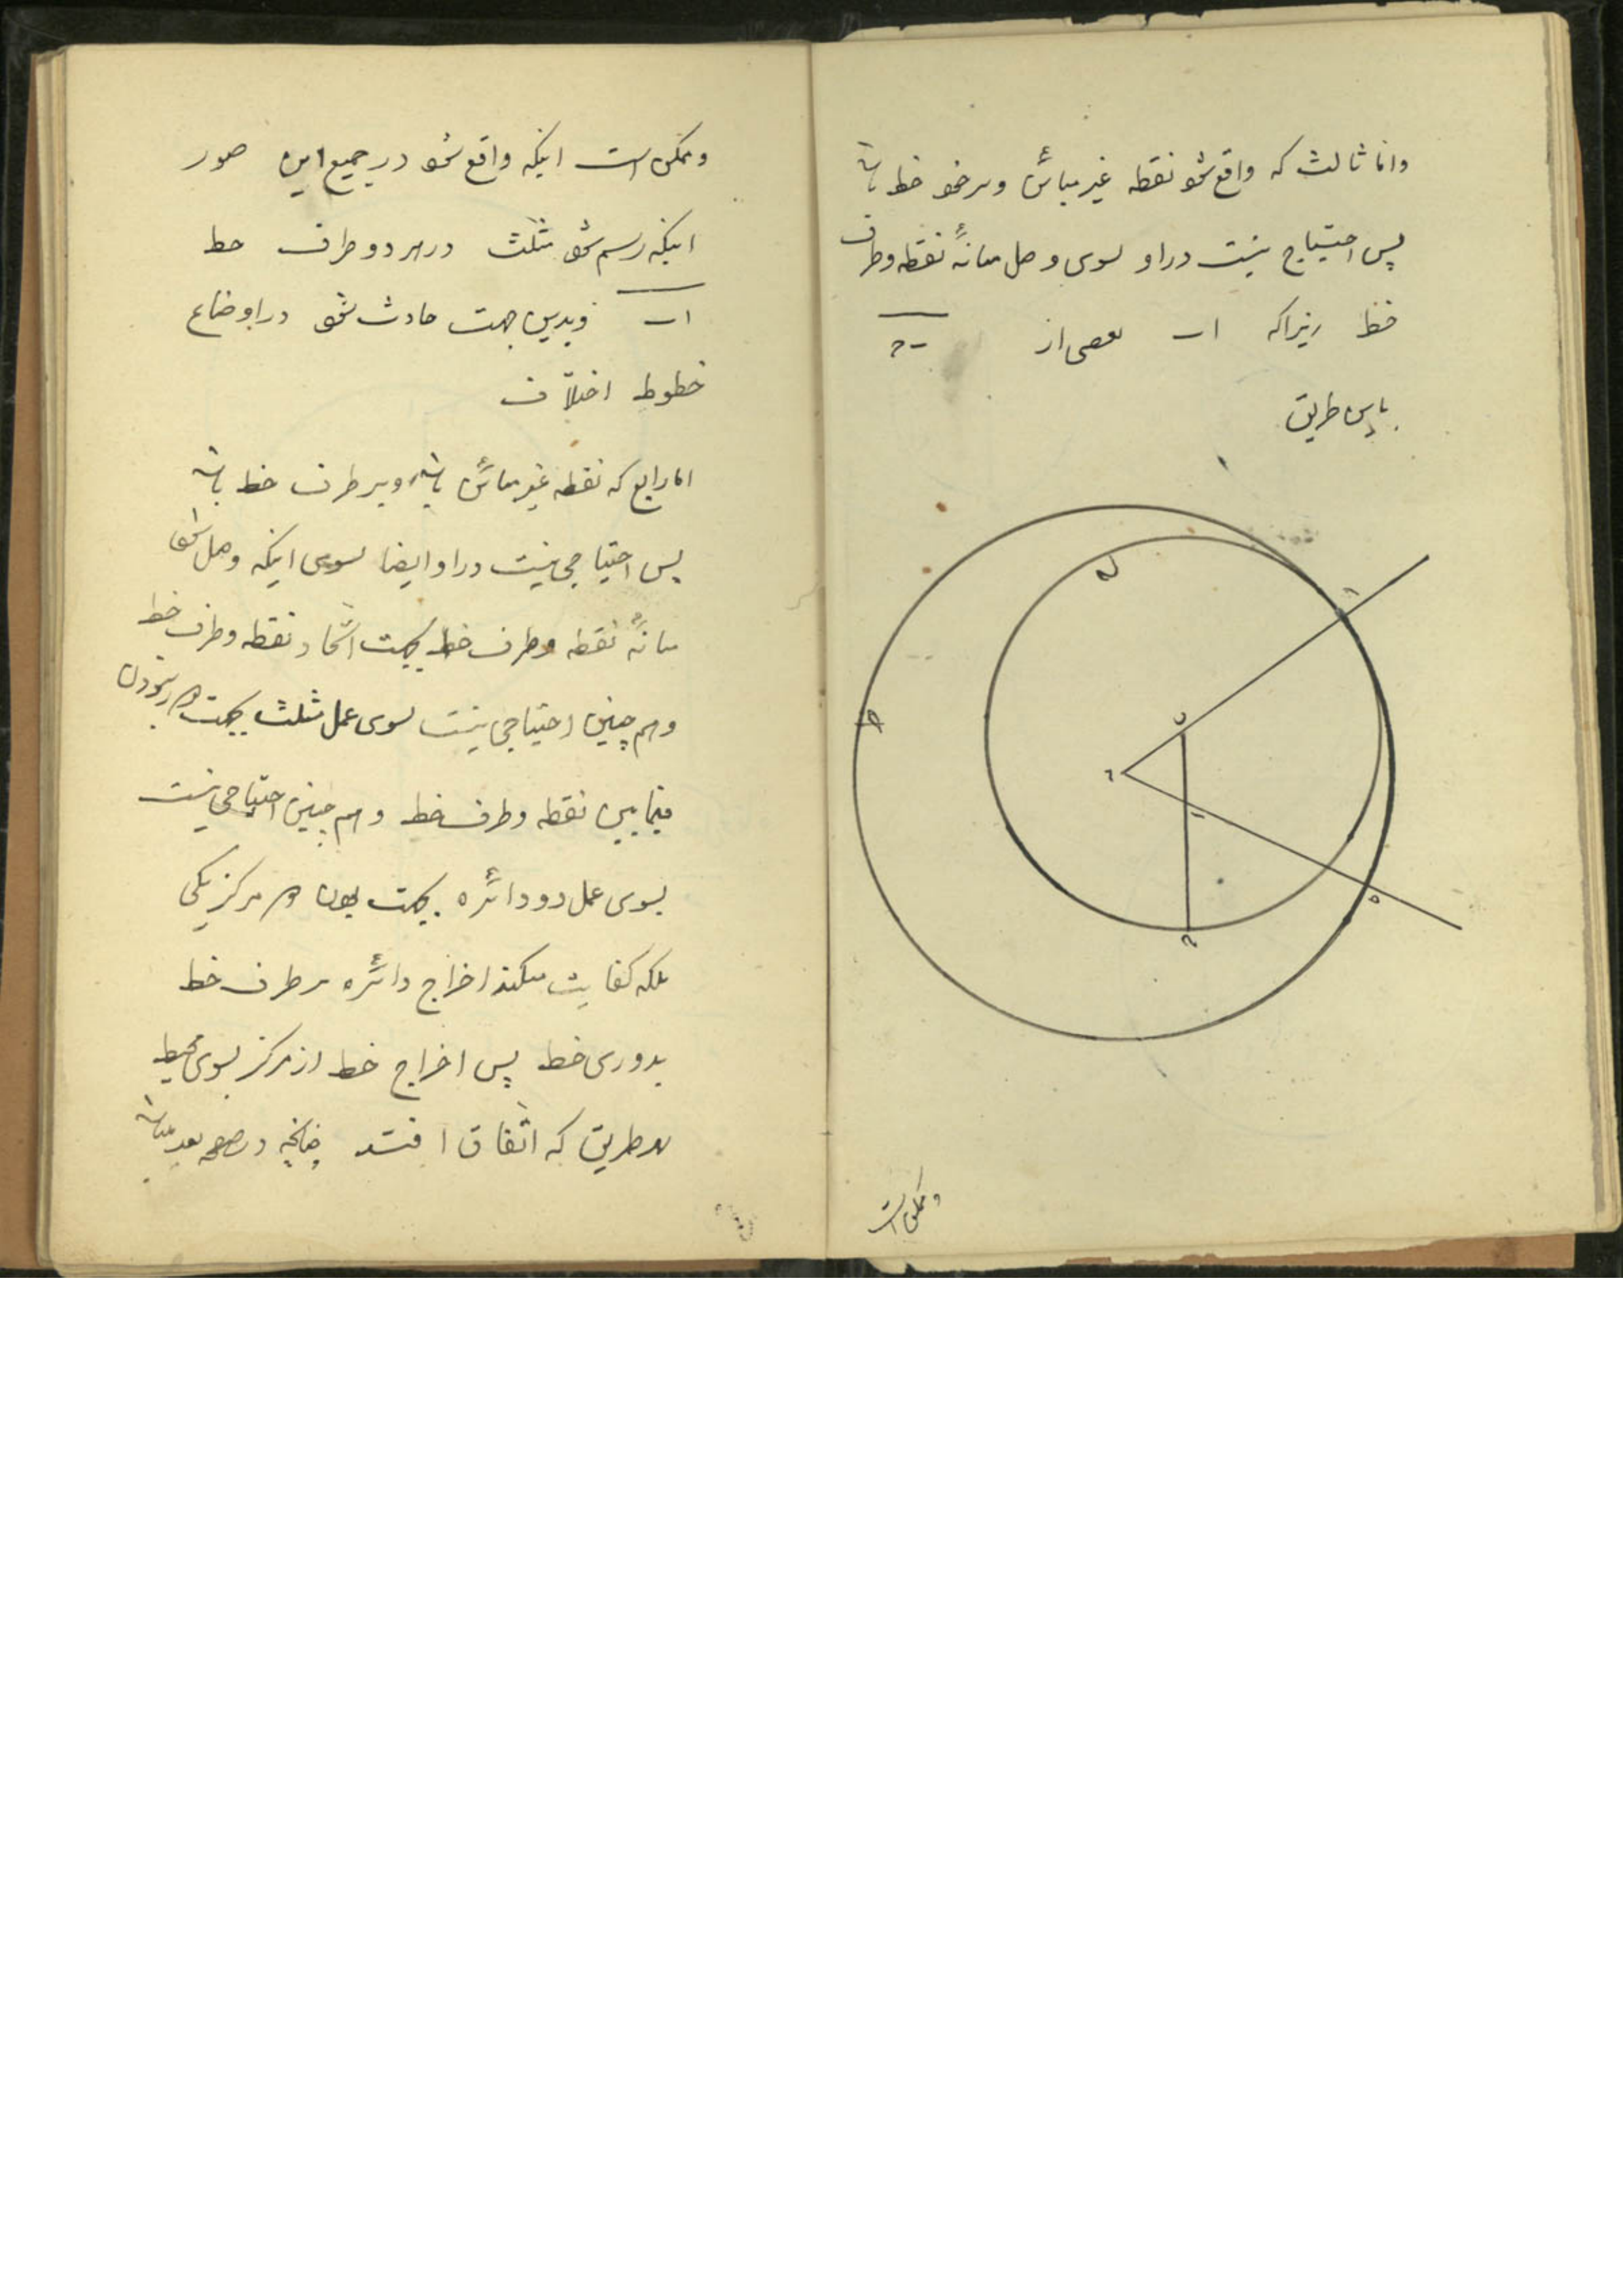 واما ثالث که واقع شود نقطه غیر مبائن و بر نحو خط باشد
پس احتیاج نیست در او بسوی وصل میانهٔ نقطه وطرف
خط زیرا که ا ب بعضی از ب ح
باین طریق
ا
ل
ب
د
ح
ه
وممکن است
وممکن است اینکه واقع شود در جمیع این صور
اینکه رسم شود مثلث در هر دو طرف خط
ا ب وبدین جهت حادث شود در اوضاع
خطوط اختلاف
اما رابع که نقطه غیر مبائن باشد و بر طرف خط باشد
پس احتیاجی نیست در او ایضا بسوی اینکه وصل شود
میانهٔ نقطه وطرف خط بجهت اتحاد نقطه وطرف خط
وهم چنین احتیاجی نیست بسوی عمل مثلث بجهت نبودن
فیما بین نقطه وطرف خط وهم چنین احتیاجی نیست
بسوی عمل دو دائره بجهت بودن مرکز یکی
بلکه کفایت میکند اخراج دائره بر طرف خط
بدوری خط پس اخراج خط از مرکز بسوی محیط
بهر طریق که اتّفاق افتد چنانچه در صفحه بعد میباشد